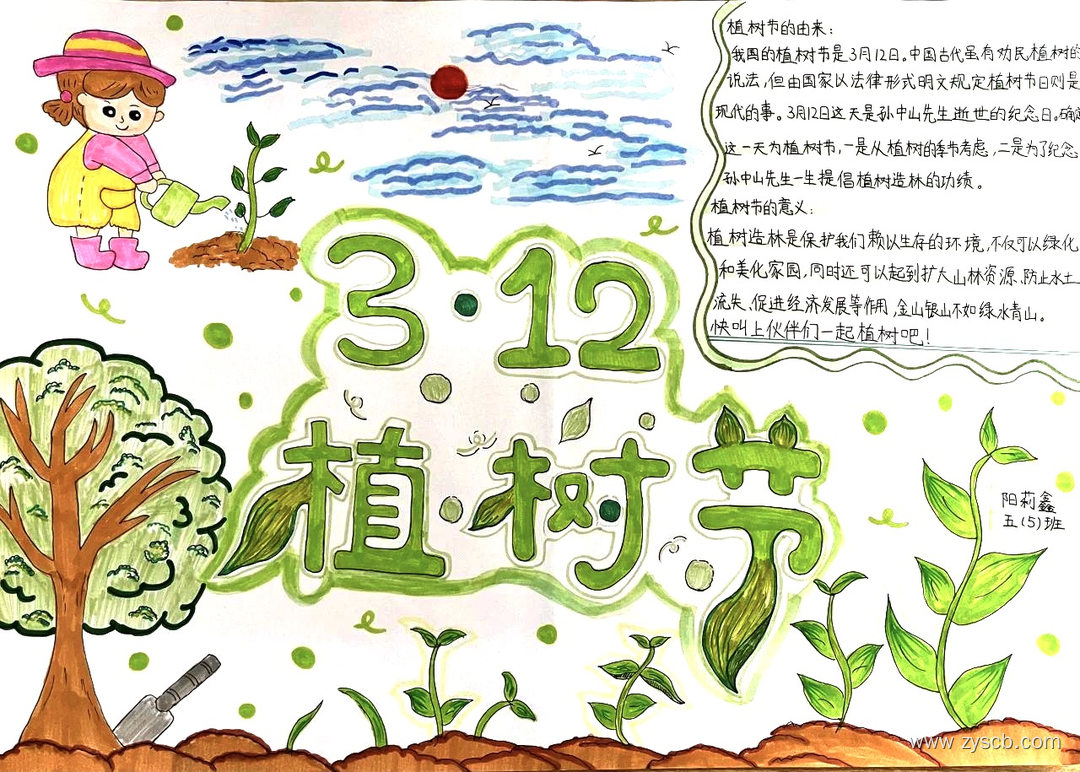 植树节的由来:
我国的植树节是3月12日。中国古代虽有劝民植树的
说法,但由国家以法律形式明文规定植树节日则是
现代的事。3月12日这天是孙中山先生逝世的纪念日。确定
这一天为植树节,一是从植树的季节考虑,二是为了纪念
孙中山先生一生提倡植树造林的功绩。
植树节的意义:
植树造林是保护我们赖以生存的环境,不仅可以绿化
和美化家园,同时还可以起到扩大山林资源、防止水土
流失、促进经济发展等作用,金山银山不如绿水青山。
快叫上伙伴们一起植树吧!
3·12
植树节
阳莉鑫
五(5)班
www.zyscb.com